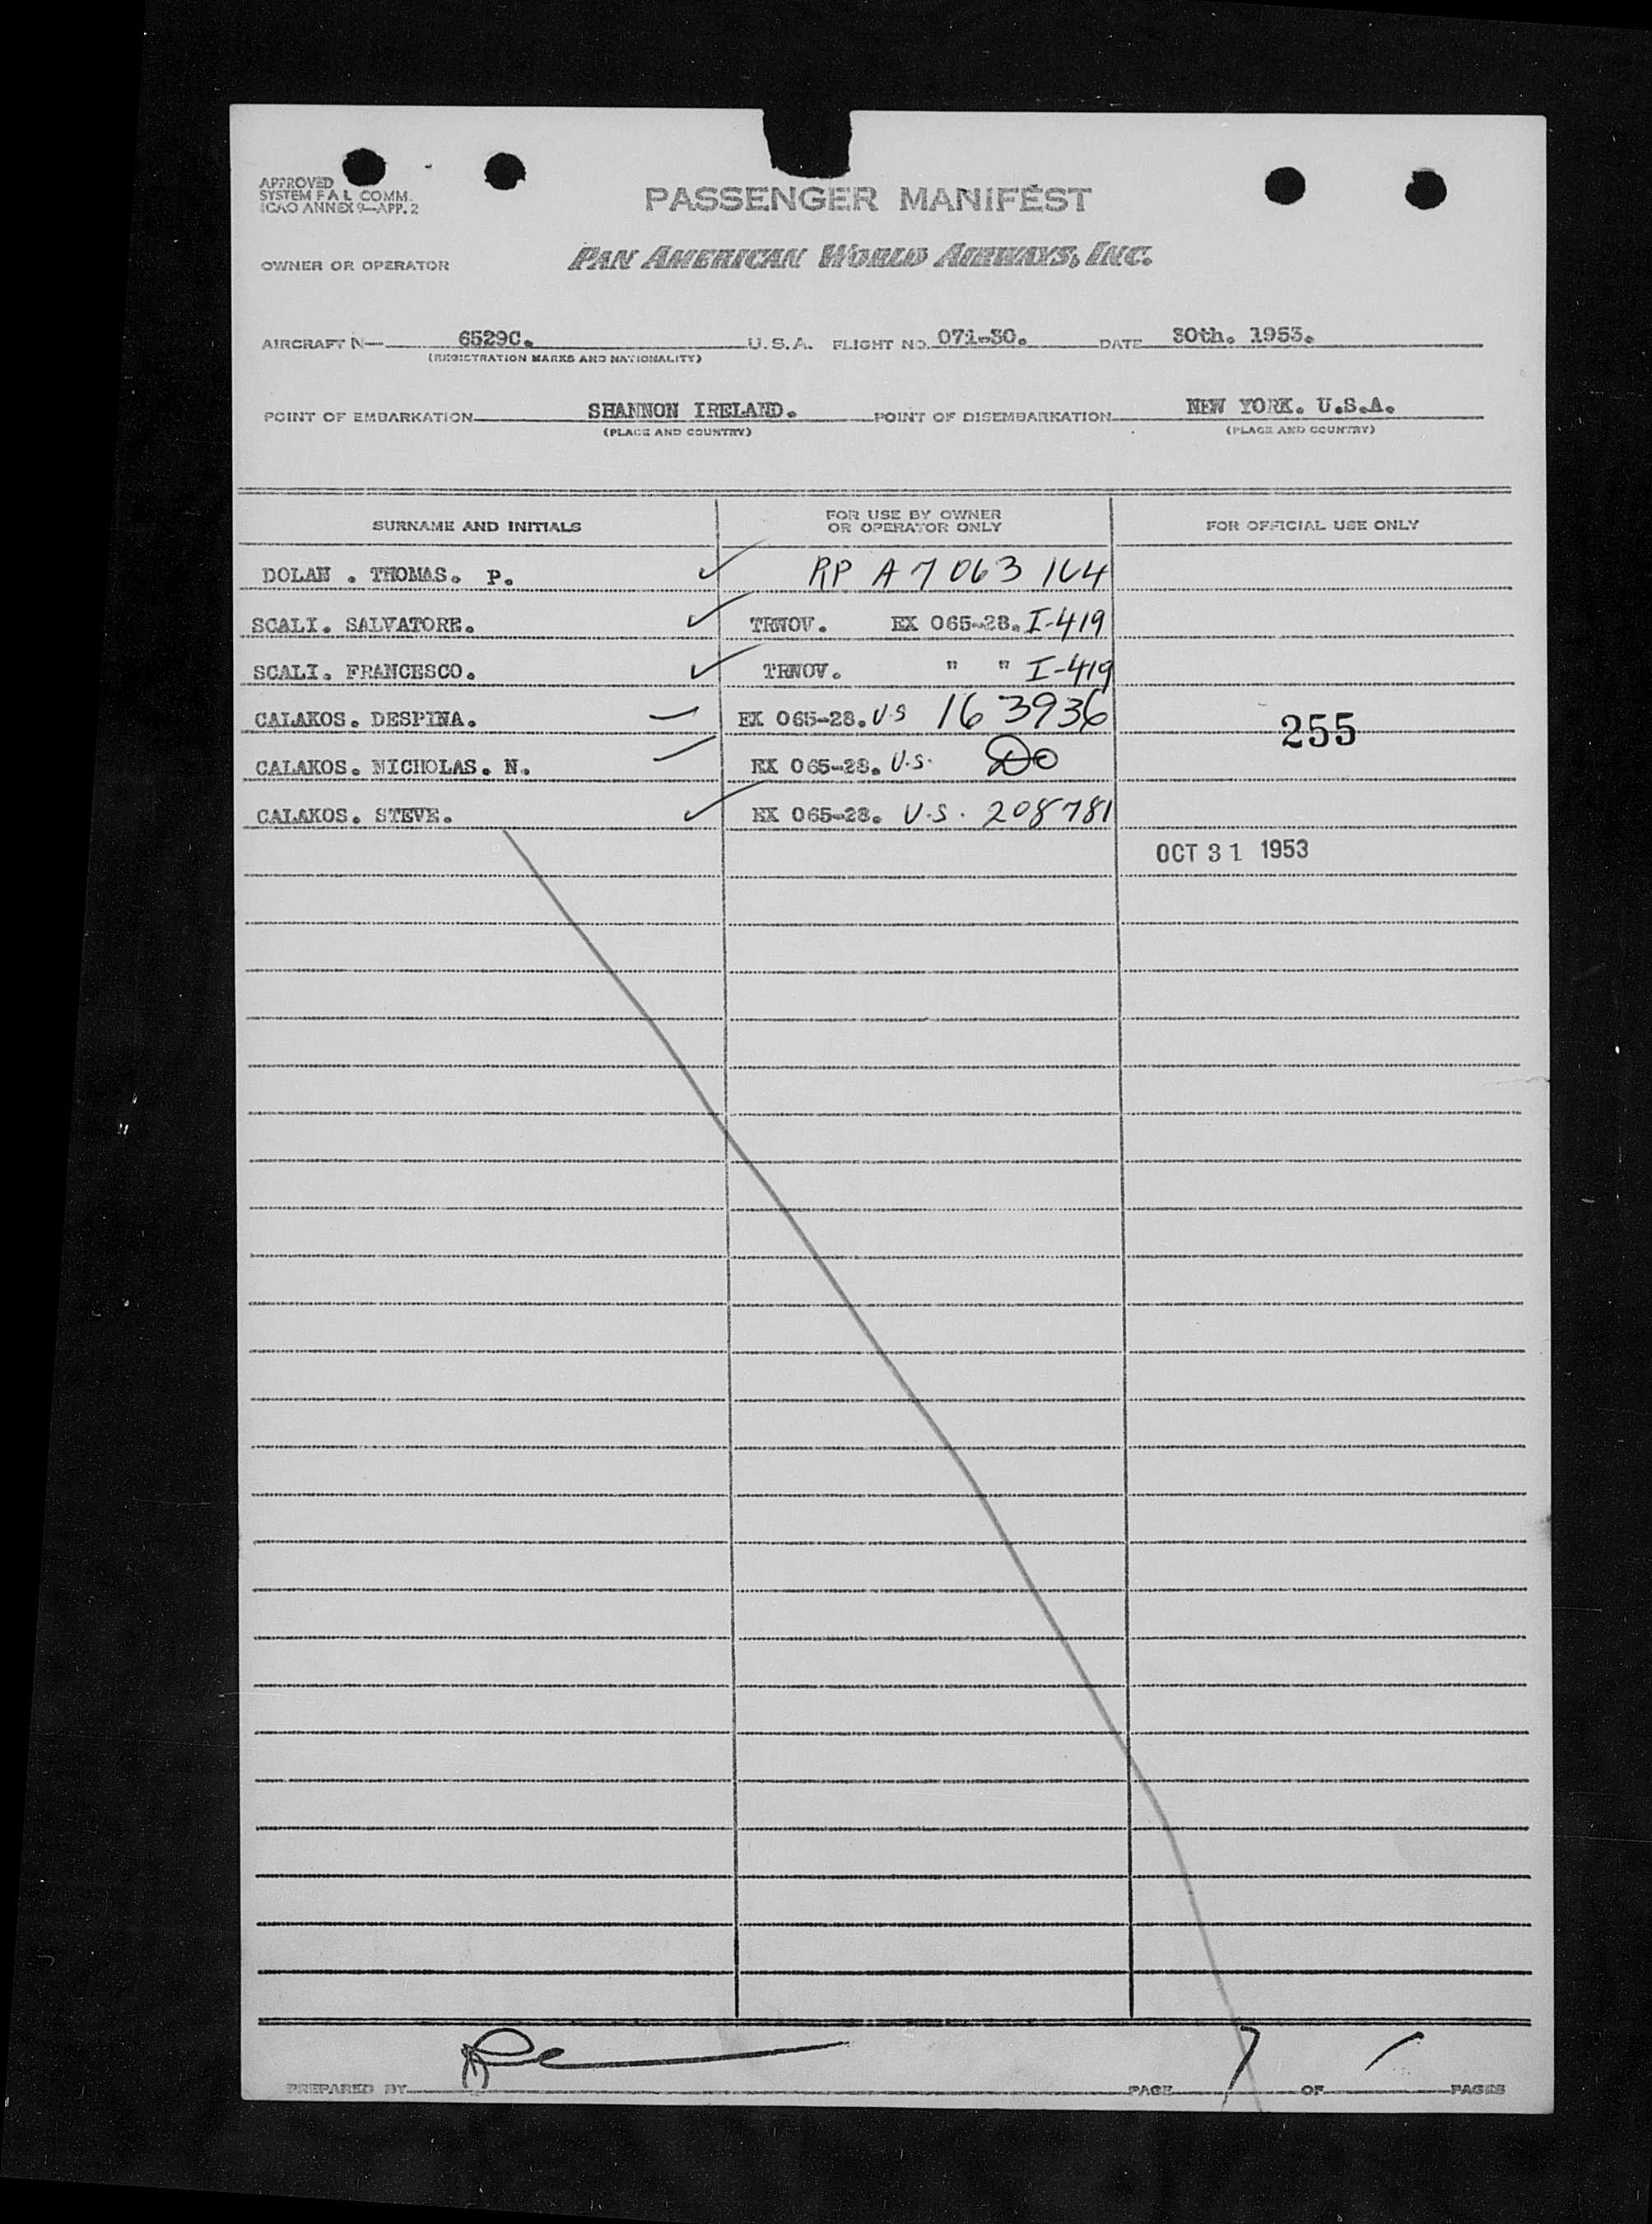 APPROVED
SYSTEM F A L COMM.
ICAO ANNEX 9—APP. 2
PASSENGER MANIFEST
OWNER OR OPERATOR
PAN AMERICAN WORLD AIRWAYS, INC.
AIRCRAFT N— 6529C. U.S.A. FLIGHT NO. 071-30. DATE 30th. 1953.
(REGISTRATION MARKS AND NATIONALITY)
POINT OF EMBARKATION SHANNON IRELAND. POINT OF DISEMBARKATION NEW YORK. U.S.A.
(PLACE AND COUNTRY) (PLACE AND COUNTRY)
SURNAME AND INITIALS FOR USE BY OWNER OR OPERATOR ONLY FOR OFFICIAL USE ONLY
DOLAN . THOMAS. P. RP A7 063 164
SCALI. SALVATORE. TRNOV. EX 065-28. I-419
SCALI. FRANCESCO. TRNOV. " " I-419
CALAKOS. DESPINA. EX 065-28. U.S 163936
255
CALAKOS. NICHOLAS. N. EX 065-28. U.S. Do
CALAKOS. STEVE. EX 065-28. U.S. 208781
OCT 31 1953
PREPARED BY PAGE 1 OF 1 PAGES